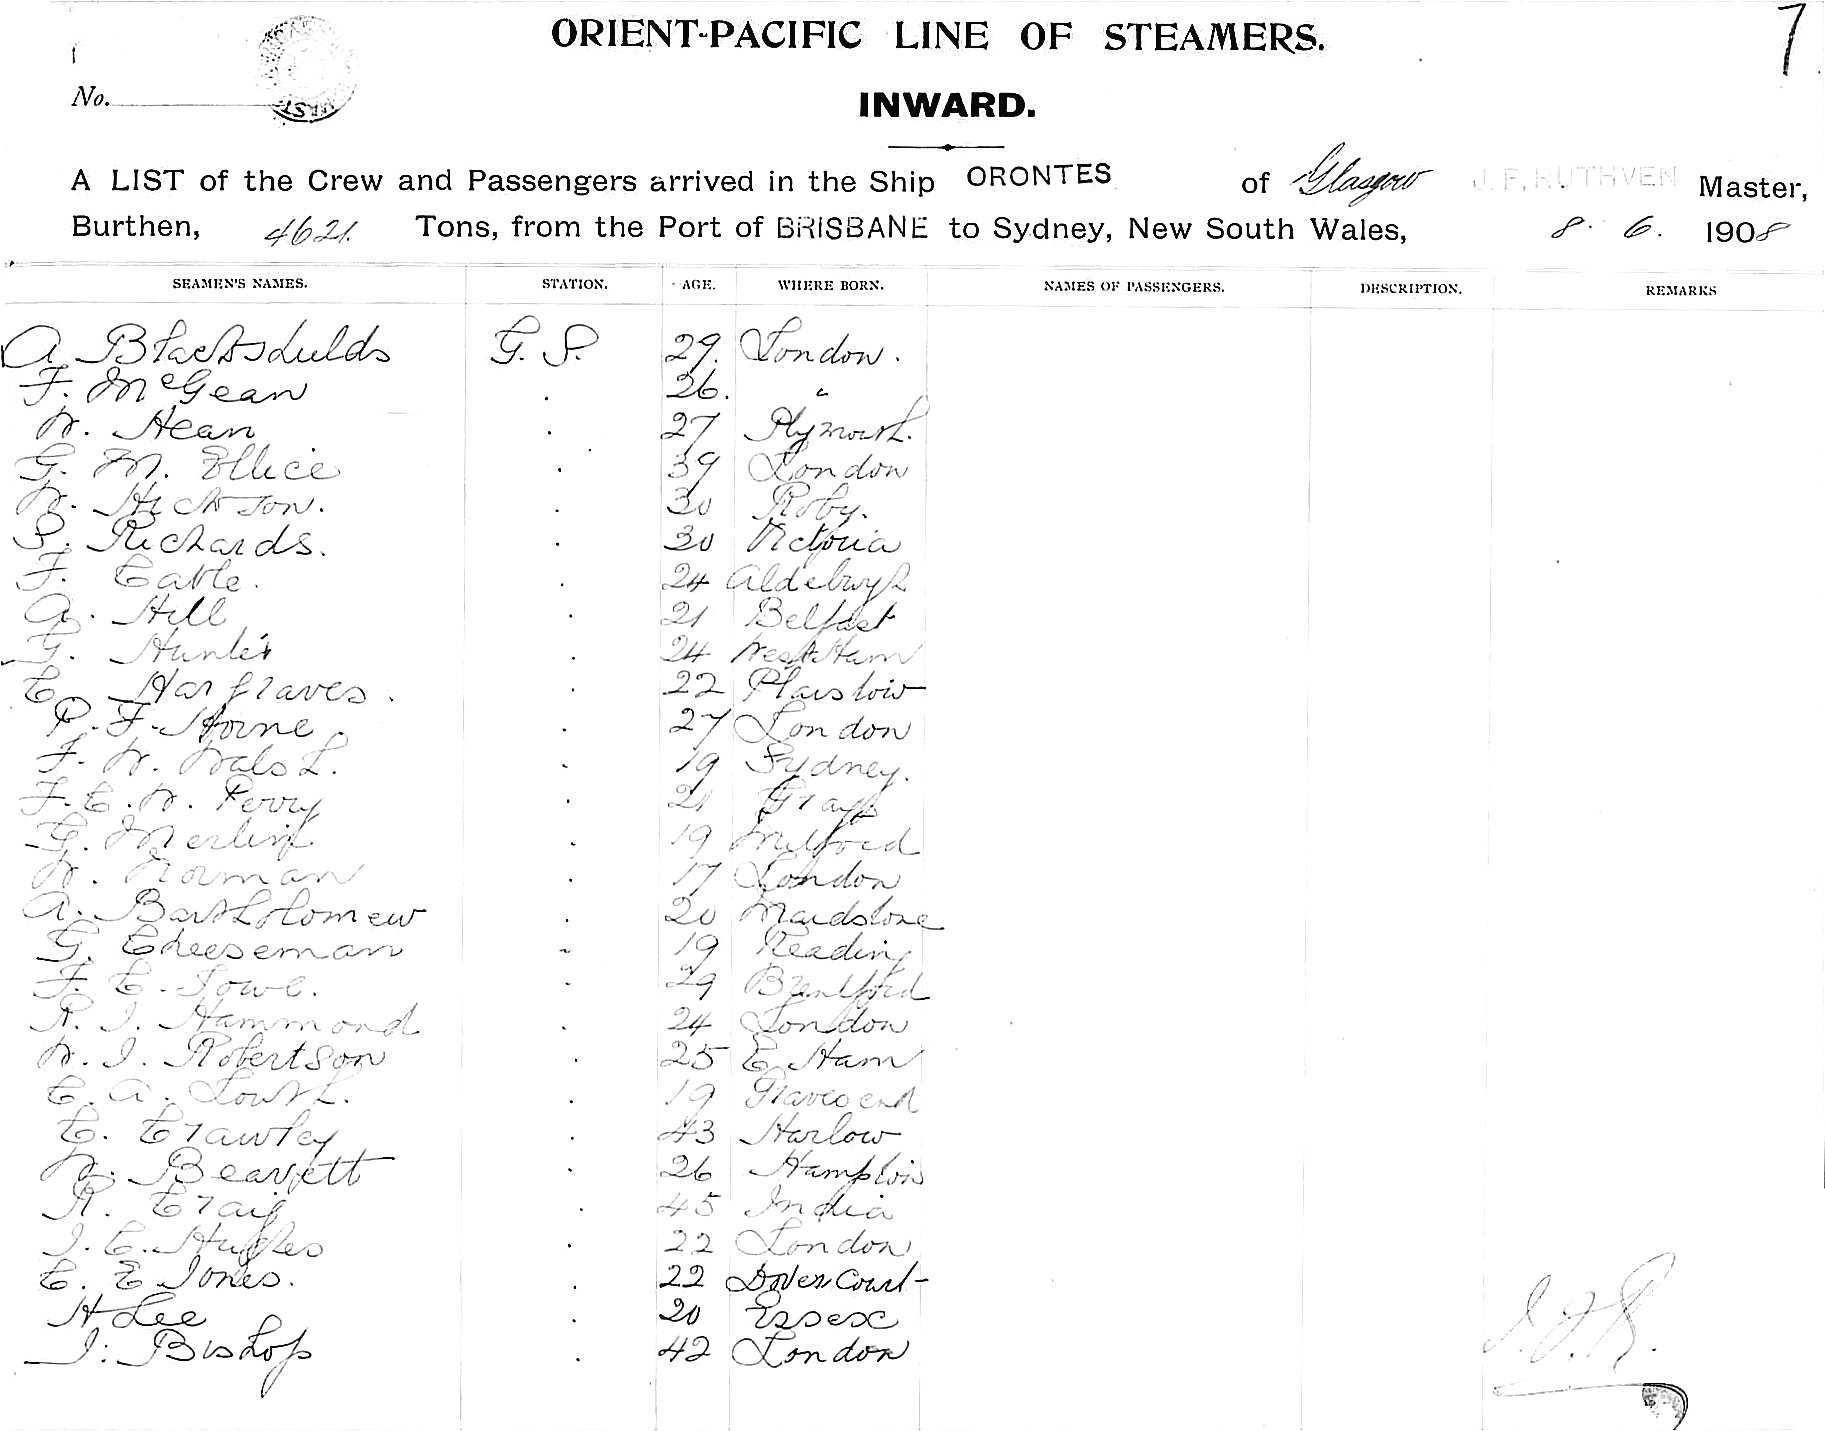 7
ORIENT-PACIFIC LINE OF STEAMERS.
No.
INWARD.
A LIST of the Crew and Passengers arrived in the Ship ORONTES of Glasgow J. F. RUTHVEN Master,
Burthen, 4621. Tons, from the Port of BRISBANE to Sydney, New South Wales, 8. 6. 1908
SEAMEN'S NAMES. STATION. AGE. WHERE BORN. NAMES OF PASSENGERS. DESCRIPTION. REMARKS
A. G. S. 29. London.
F. McGean . 26. "
W. Hean . 27 Plymouth.
G. M. Ellice . 39 London
W. Hickson. . 30 Roby.
S. Richards. . 30 Victoria
F. Cable. . 24 Aldeburgh
A. Hill . 21 Belfast
G. Hunter . 24 West Ham
C. Hargraves. . 22 Plaistow
P. F. Horne . 27 London
F. W. Walsh. . 19 Sydney.
F. C. W. Perry . 21 Grays
G. Merlin . 19 Milford
W. Norman . 17 London
A. Bartholomew . 20 Maidstone
G. Cheeseman . 19 Reading
F. C. Towe. . 29 Brentford
R. J. Hammond . 24 London
W. J. Robertson . 25 E. Ham
C. A. South. . 19 Gravesend
C. Crawley . 43 Harlow
W. . 26 Hampton
R. Craig . 45 India
J. C. Hughes . 22 London
C. E Jones. . 22 Dovercourt
H Lee . 20 Essex
J. Bishop . 42 London
J. F. R.